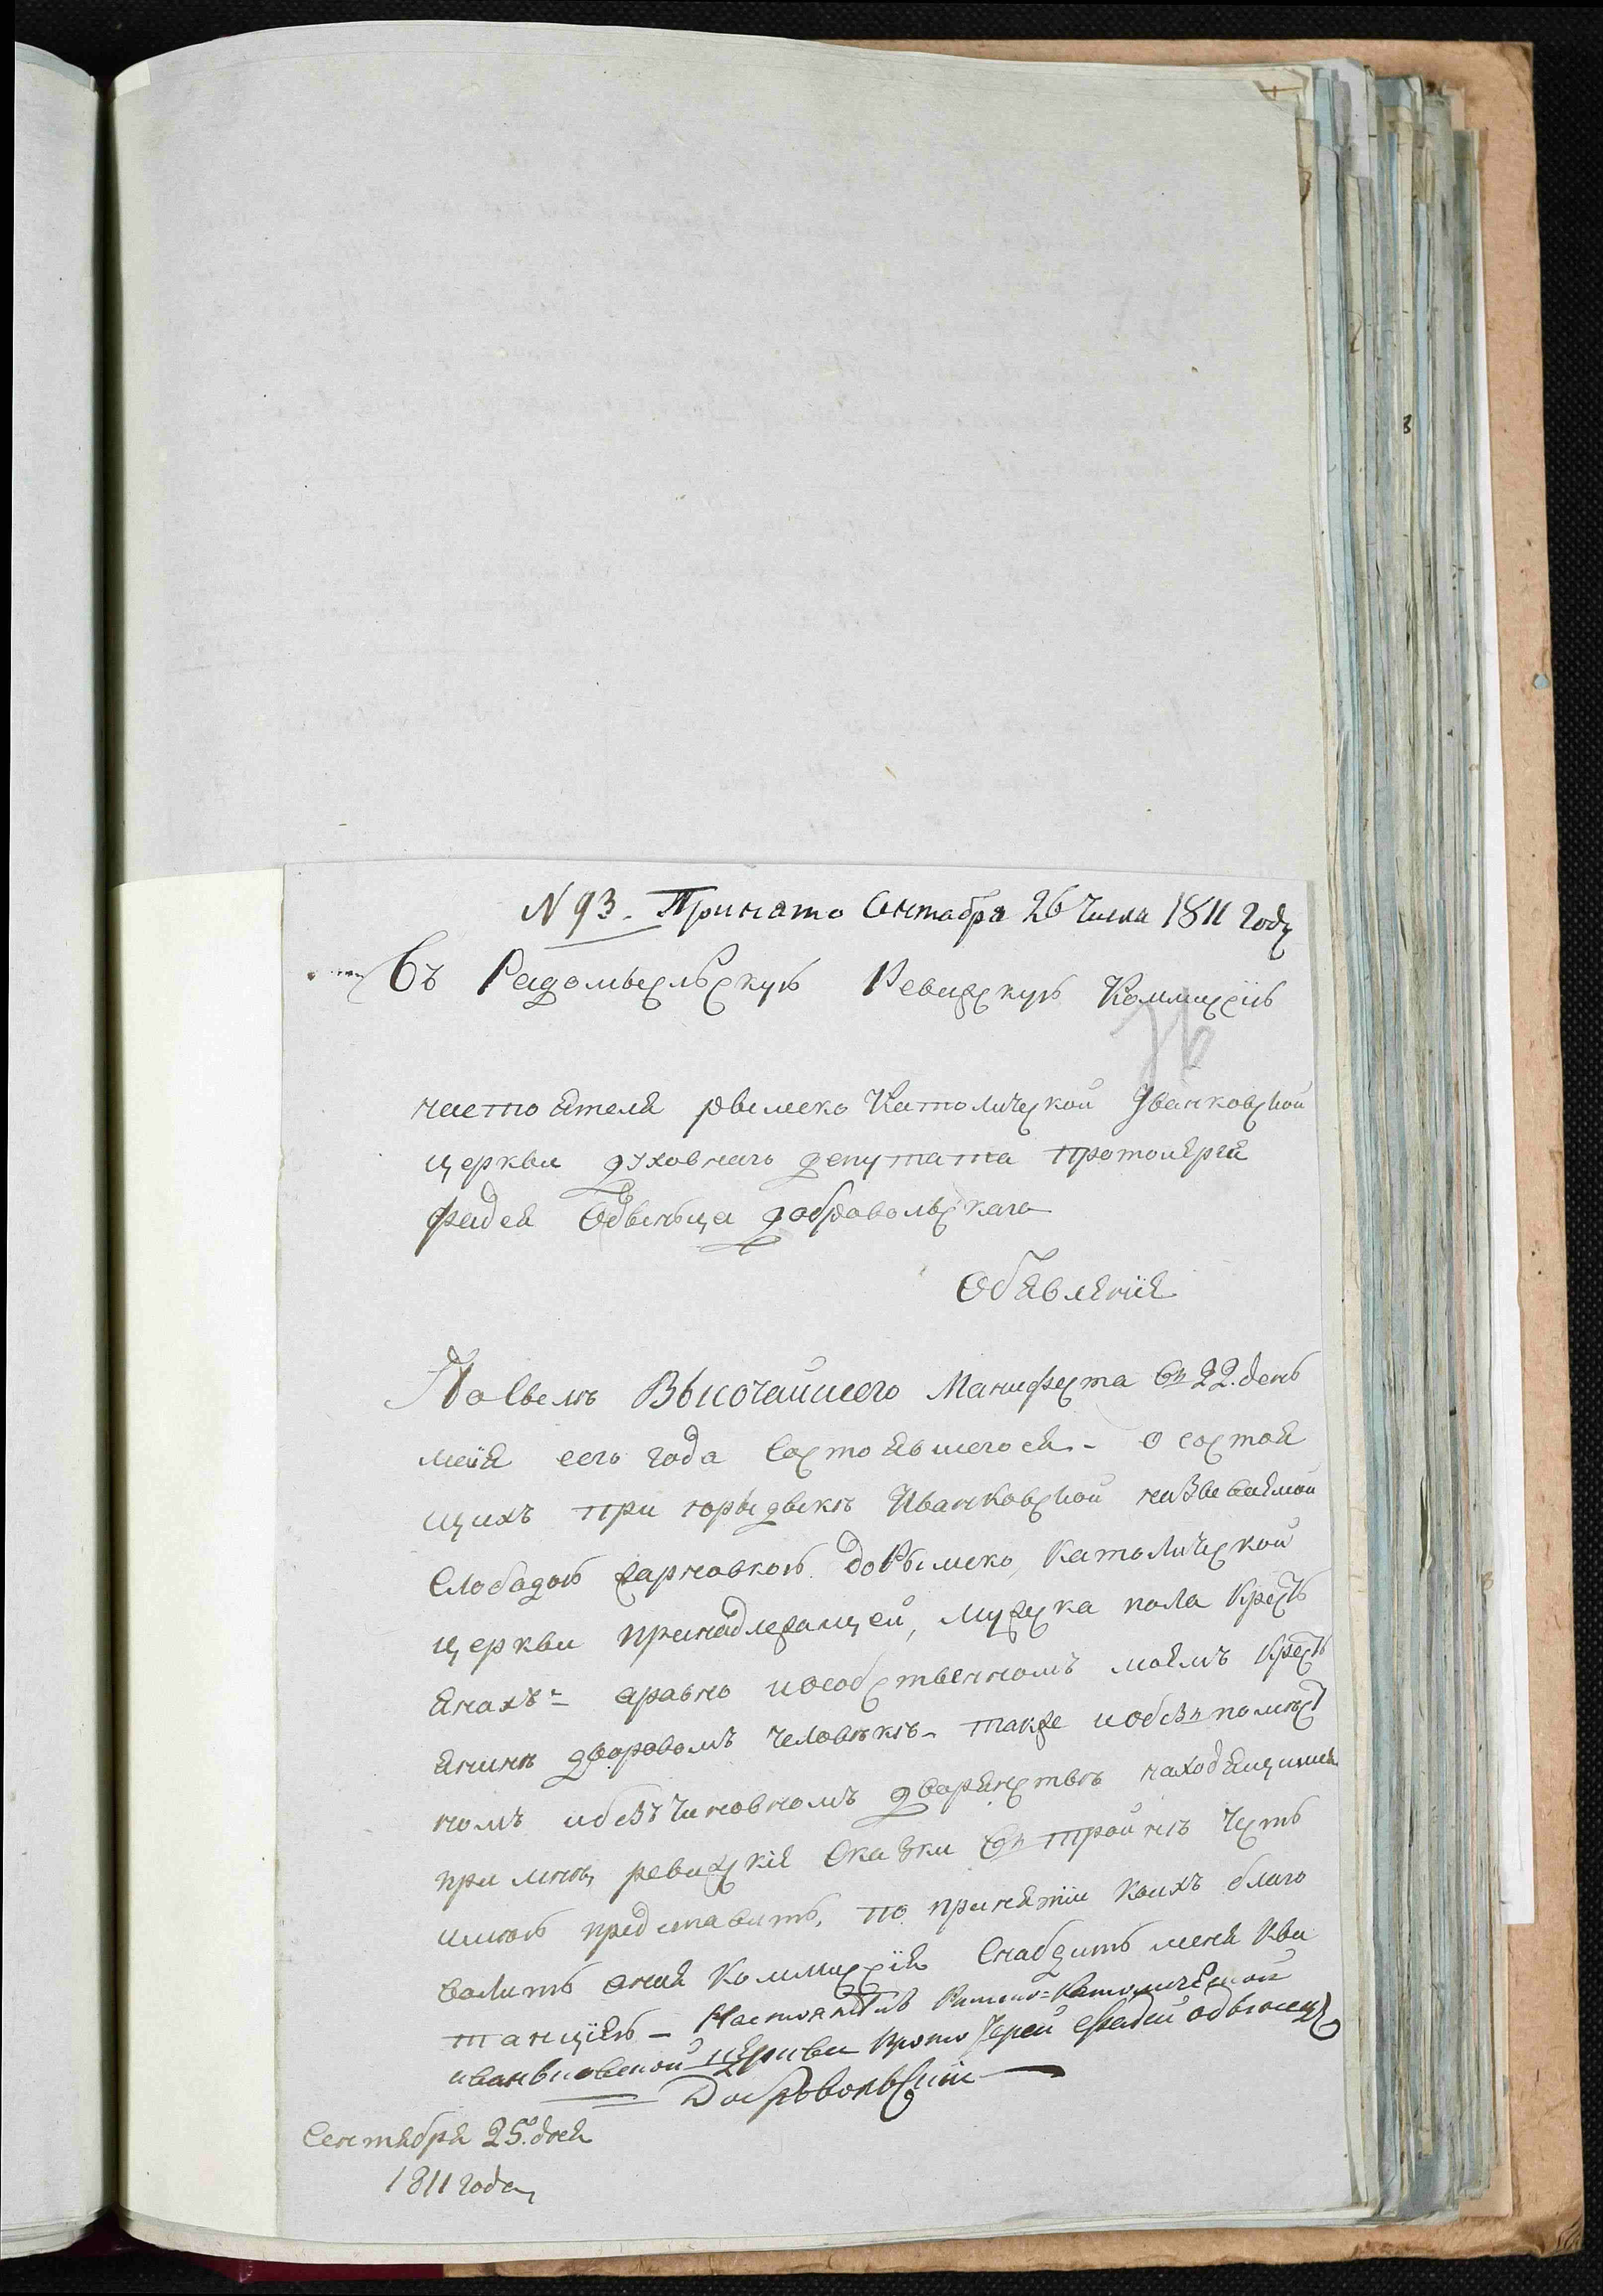 N 93. Принято Сентабря 26 Числа 1811 Году
Въ Радомысльскую Ревизскую Коммиссию
76
настоятеля рымско Католической Иванковской
церкви духовнаго депутата протоиерея
фадея Одынца добровольскаго
Объявление
По Силе Высочайшего Манифеста Въ 22. день
мая сего года Состоявшегося - о состоя
щихъ при юрыдыке Иванковской называемой
Слободою Харновкою до Рымско Католической
церкви принадлежащей, мужска пола Кресть
янахъ - аравно и о собственномъ моемъ Кресть
янине дворовомъ человеке - также и о безъ поместь
номъ и безъ чиновномъ дворянстве находящимся
при мне, ревизские Сказки Въ тройне Честь
имею представить, по принятии Коихъ благо
волить оная Коммиссия Снабдить меня Кви
танциею - Настоятель Римско=Католической
иваньковской церкви Прото Иерей Фадей Одынецъ
Добровольский
Сентября 25. дня
1811 года